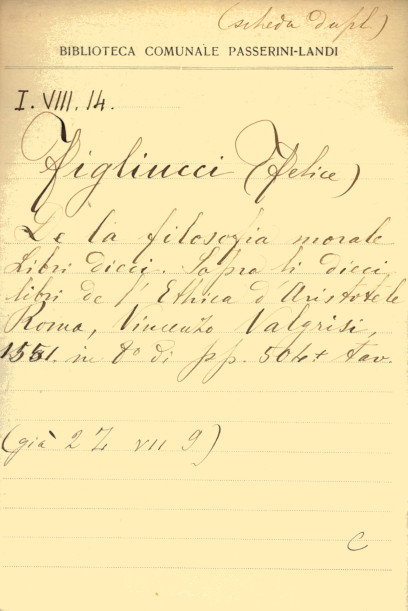 (scheda dupl.)
BIBLIOTECA COMUNALE PASSERINI-LANDI
I. VIII. 14.
Figliucci (Felice)
De la filosofia morale
Libri dieci. Sopra li dieci
libri de l'Ethica d'Aristotele
Roma, Vincenzo Valgrisi,
1551. in 8º di pp. 504+ tav.
(già 2 Z VII 9)
C